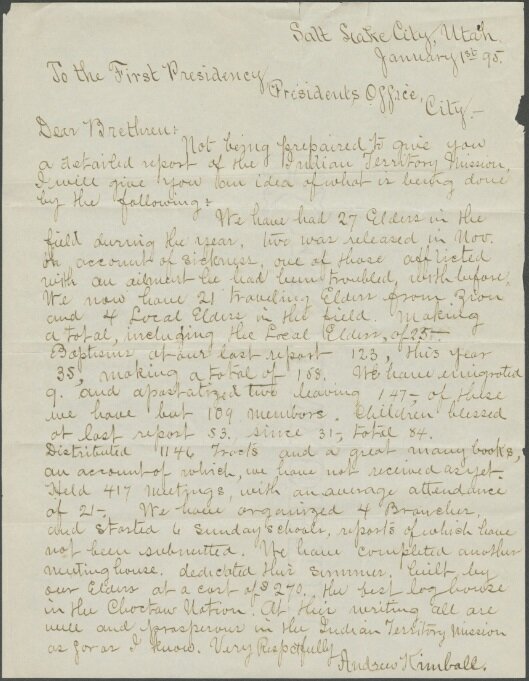 Salt Lake City, Utah.
January 1st 95.
To the First Presidency
Presidents Office,
City.-
Dear Brethren:
Not being prepaired to give you
a detailed report of the Indian Territory Mission,
I will give you an idea of what is being done
by the following:
We have had 27 Elders in the
field during the year, two was released in Nov.
on account of sickness, one of those afflicted
with an ailment he had been troubled, with before.
We now have 21 traveling Elders from Zion
and 4 Local Elders in the field. Making
a total, including the Local Elders, of 25-.
Baptisms at our last report 123, this year
35, making a total of 158. We have emigrated
9. and apostatized two leaving 147-, of these
we have but 109 members. Children blessed
at last report 53. since 31-, total 84.
Distributed 1146 Tracts and a great many books,
an account of which, we have not received as yet.
Held 417 meetings, with an average attendance
of 21-. We have organized 4 Branches,
and started 6 Sunday schools, reports of which have
not been submitted. We have completed another
meeting house. dedicated this summer, built by
our Elders at a cost of $270. the best log house
in the Choctaw Nation. At this writing all are
well and prosperous in the Indian Territory Mission
as far as I know. Very Respectfully
Andrew Kimball.